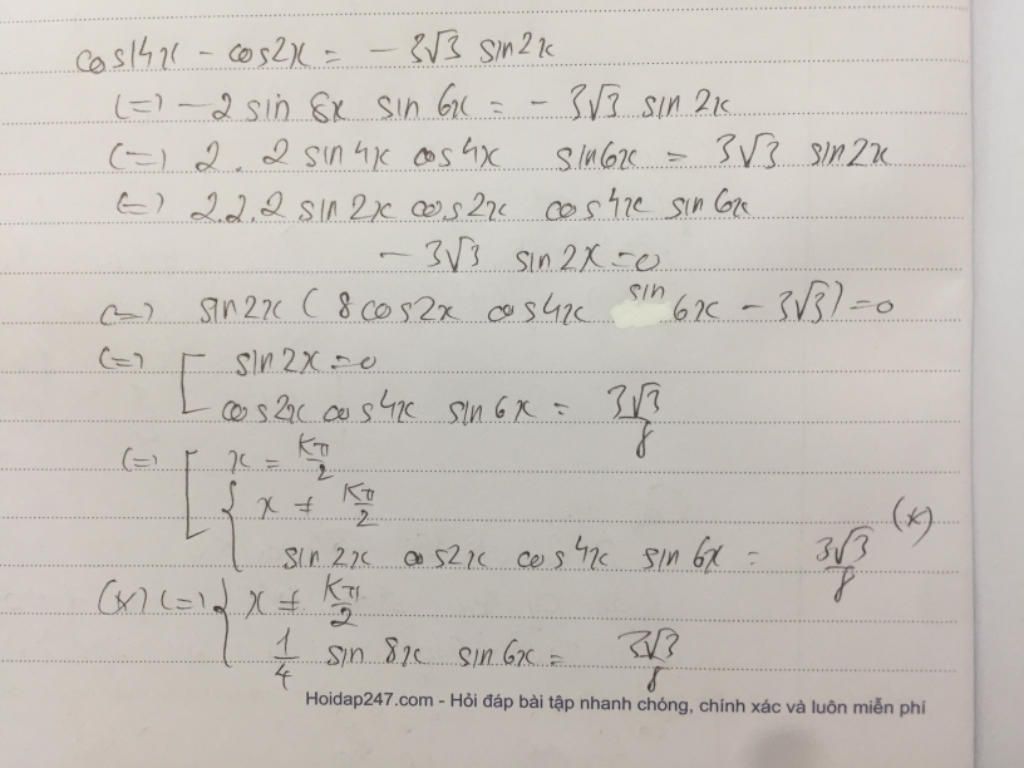 cos14x - cos2x = - 3√3 sin2x
(=) - 2 sin 8x sin 6x = - 3√3 sin 2x
(=) 2. 2 sin4x cos4x sin6x = 3√3 sin2x
(=) 2.2.2 sin 2x cos2x cos4x sin 6x
- 3√3 sin 2x = 0
(=) sin2x ( 8cos2x cos4x sin 6x - 3√3) = 0
(=) [ sin 2x = 0
cos2x cos4x sin 6x = 3√3/8
(=) [ x = Kπ/2
{ x ≠ Kπ/2
sin 2x cos2x cos4x sin 6x = 3√3/8 (*)
(*) (=) { x ≠ Kπ/2
1/4 sin 8x sin 6x = 3√3/8
Hoidap247.com - Hỏi đáp bài tập nhanh chóng, chính xác và luôn miễn phí